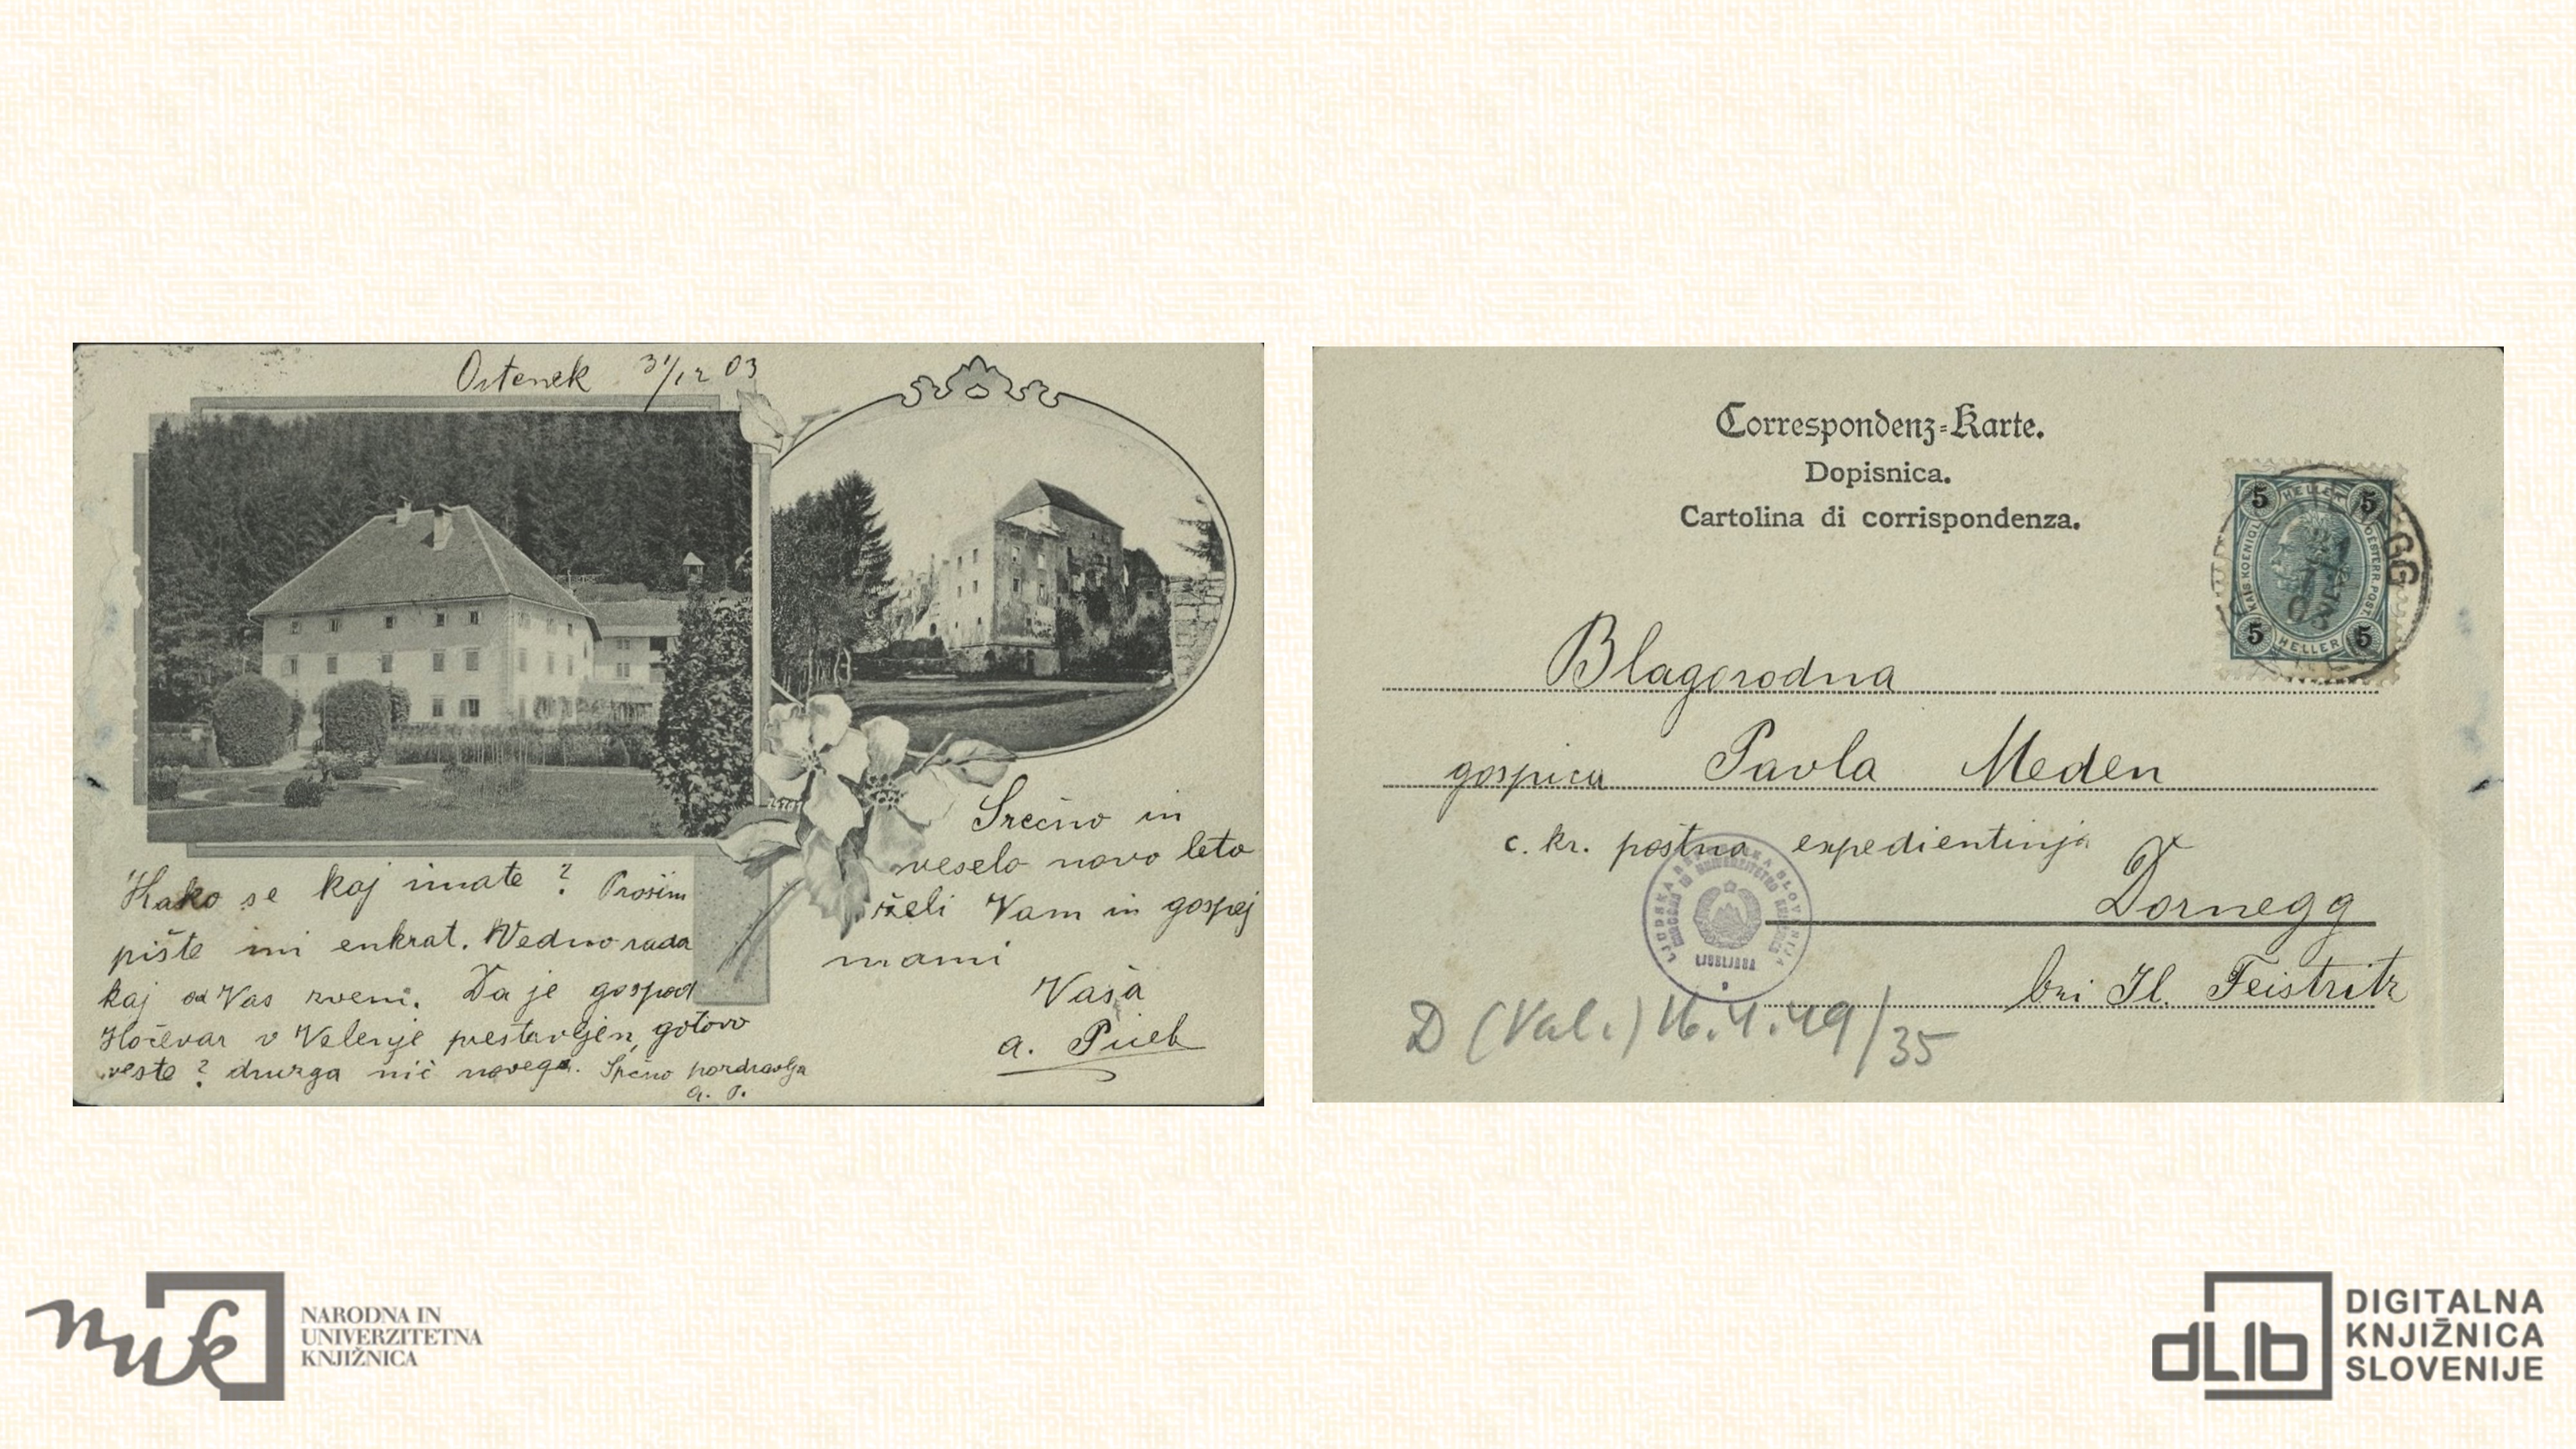 Ortenek 31/12 03
25701
Srečno in
veselo novo leto
želi Vam in gospej
mami
Vaša
a.
Kako se kaj imate ? Prosim
pište mi enkrat. Vedno rada
kaj od Vas zvem. Da je gospod
Hočevar v Velenje prestavljen, gotovo
veste ? druzga nič novega. Srčno pozdravlja
a. P.
Correspondenz-Karte.
Dopisnica.
Cartolina di corrispondenza.
5 HELLER 5
KAIS. KOENIGL. OESTERR. POST.
5 HELLER 5
GG
Blagorodna
gospica Pavla Meden
c. kr. poštna expedientinja
Dornegg
bri Il. Feistritz
LJUDSKA REPUBLIKA SLOVENIJA
LJUBLJANA
D (Val.) 16.4.49/35
nuk
NARODNA IN
UNIVERZITETNA
KNJIŽNICA
dLib
DIGITALNA
KNJIŽNICA
SLOVENIJE